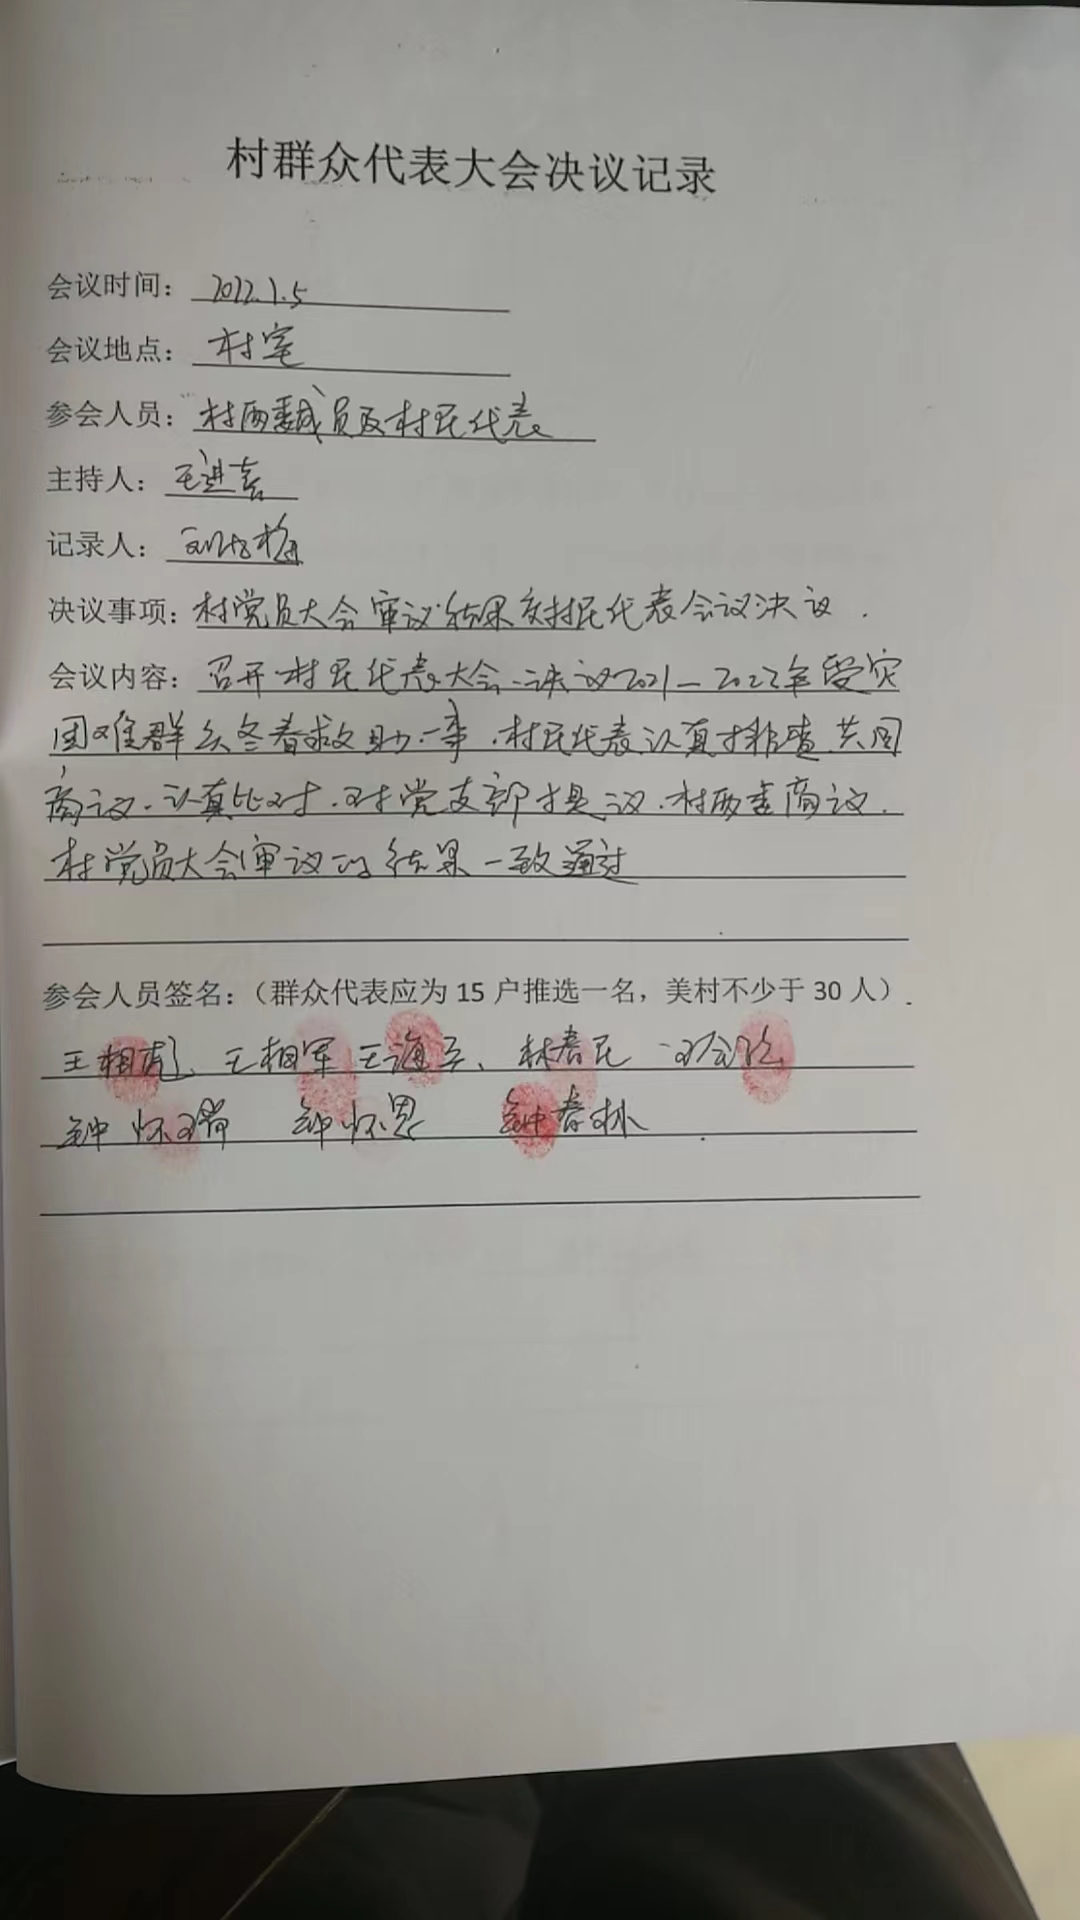 村群众代表大会决议记录
会议时间：2022.1.5
会议地点：村室
参会人员：村两委成员及村民代表
主持人：王进喜
记录人：
决议事项：村党员大会审议结果交村民代表会议决议.
会议内容：召开村民代表大会决议2021—2022年受灾
困难群众冬春救助一事.村民代表认真排查.共同
商议.认真比对.对党支部提议.村两委商议.
村党员大会审议的结果一致通过
参会人员签名：（群众代表应为 15 户推选一名，美村不少于 30 人）.
王相彪、王相军 王海军、林春民
钟怀瑞 钟怀恩 钟春林